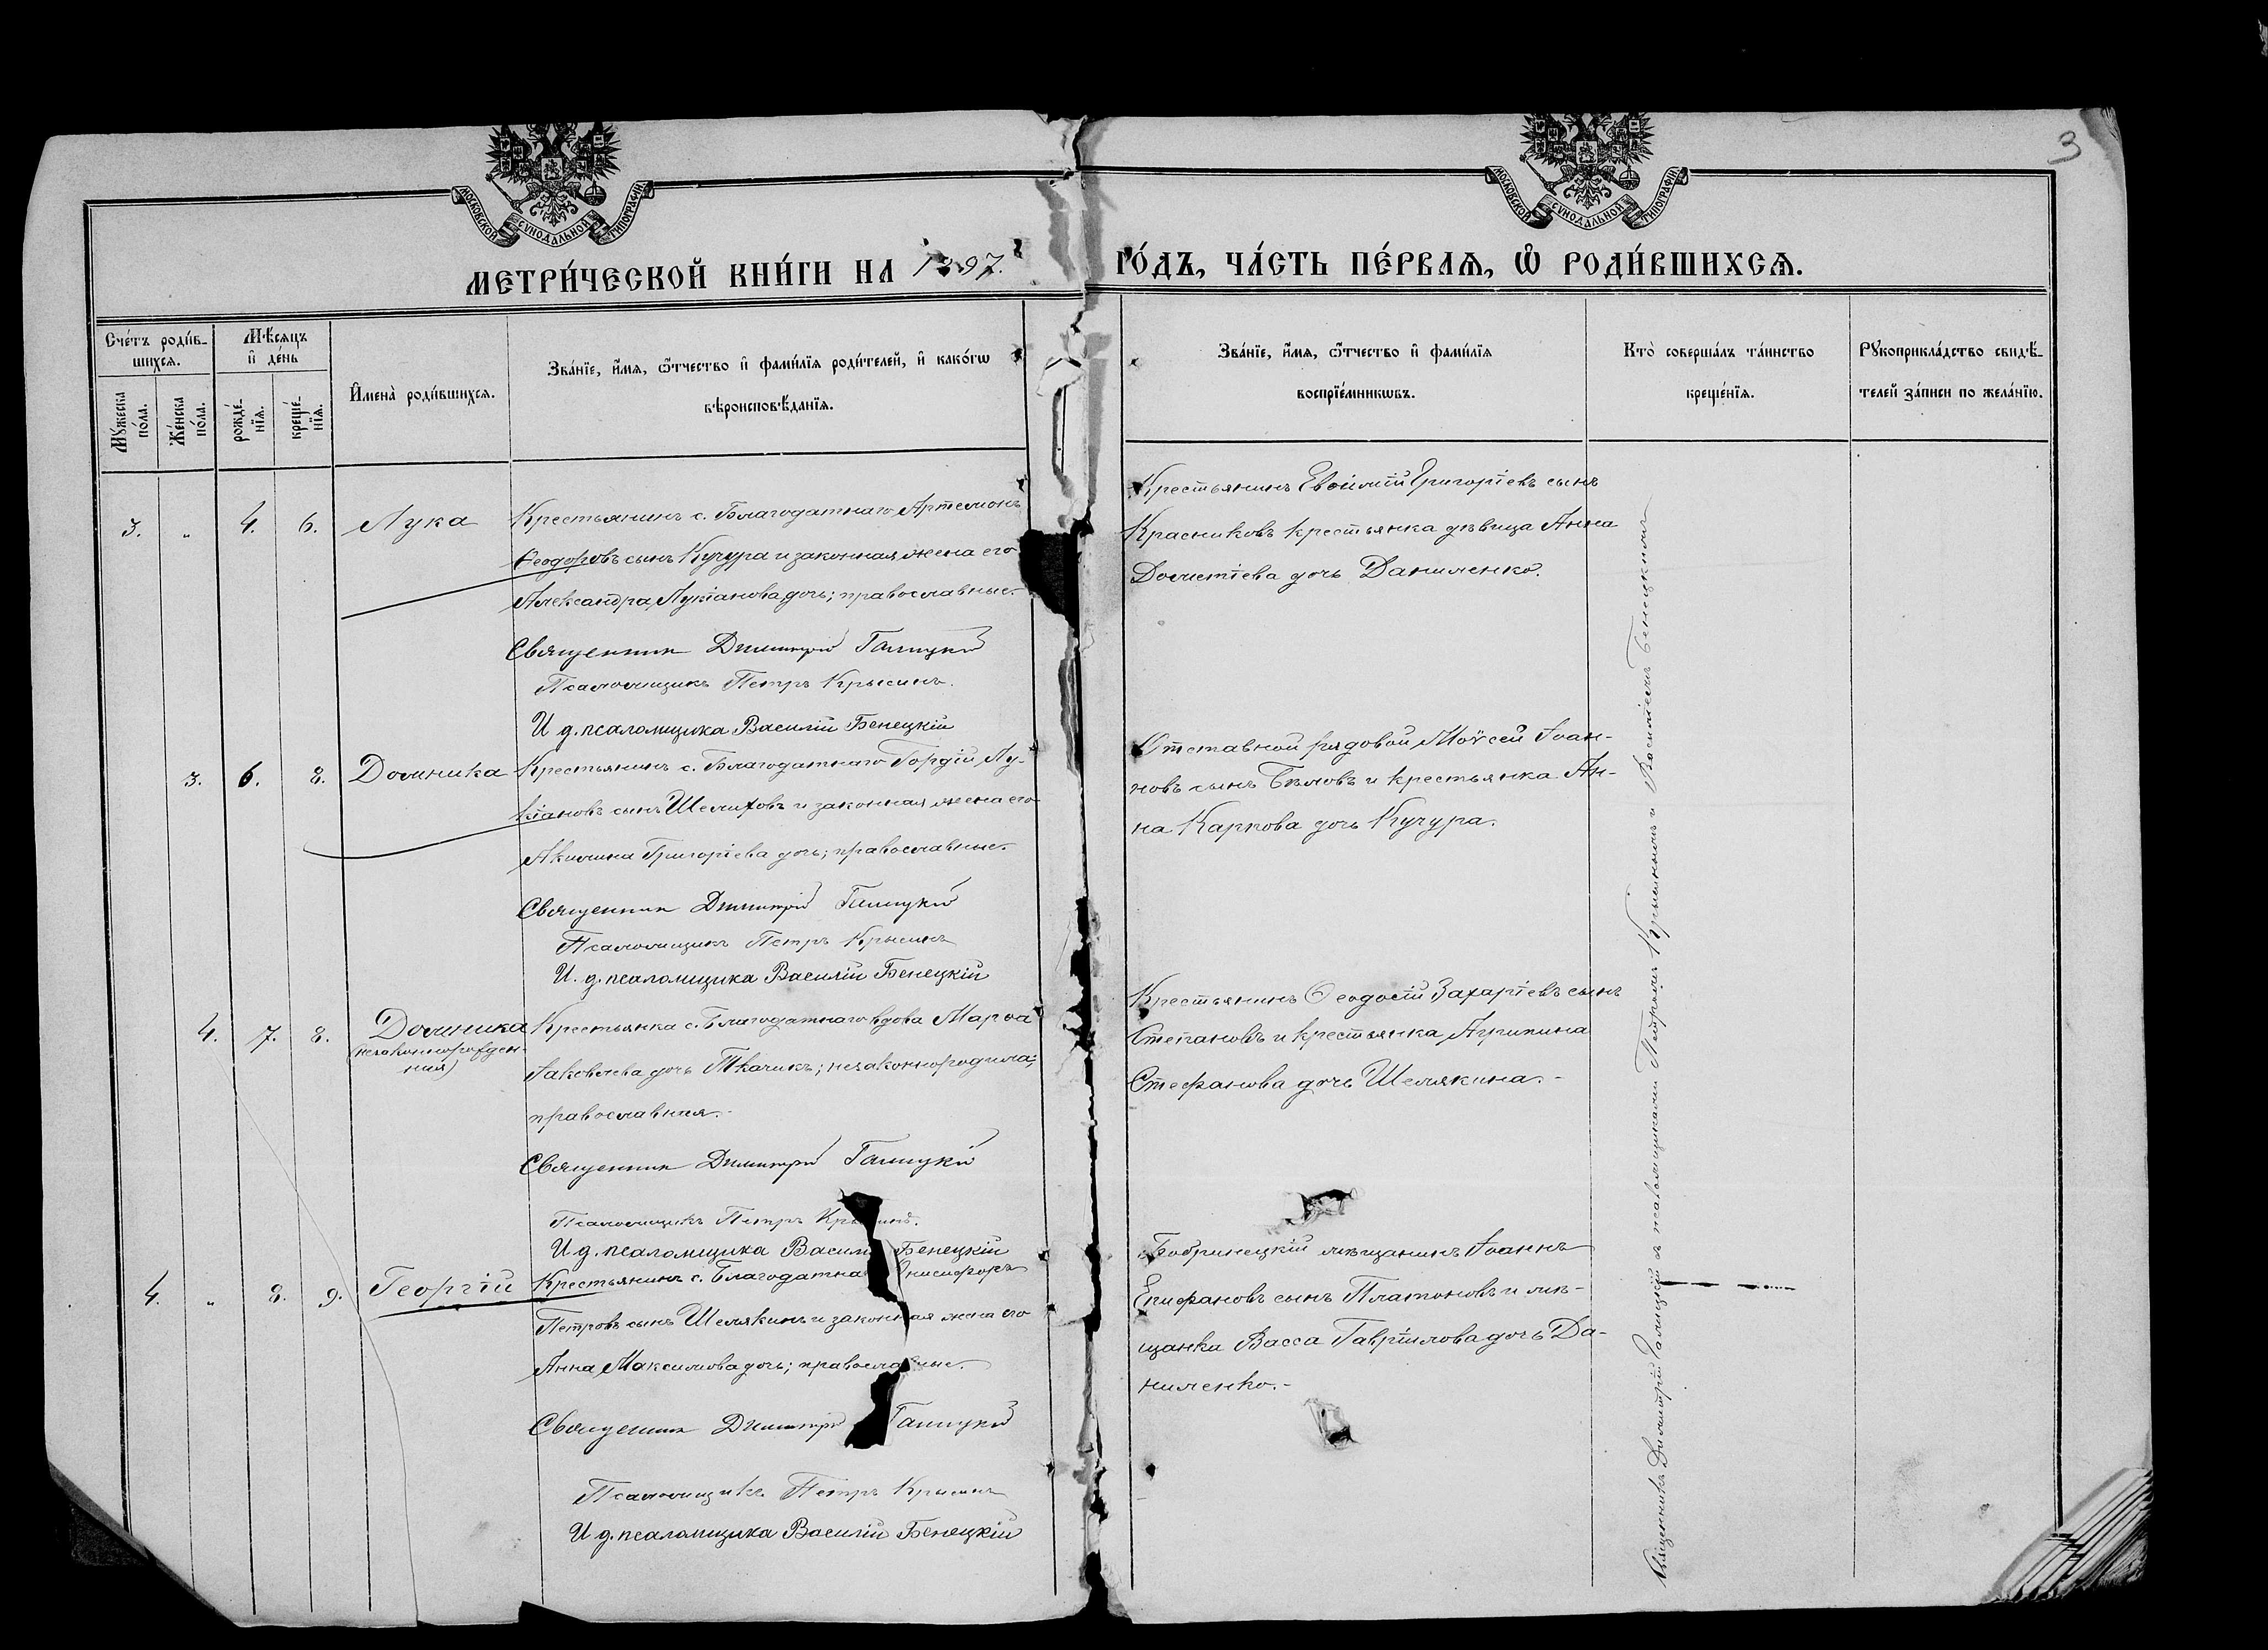 3
МОСКОВСКОЙ СУНОДАЛЬНОЙ ТИПОГРАФІИ
МОСКОВСКОЙ СУНОДАЛЬНОЙ ТИПОГРАФІИ
МЕТРИ́ЧЕСКОЙ КНИ́ГИ НА 1897.
ГО́ДЪ, ЧА́СТЬ ПЕ́РВАѦ, Ѡ҆ РОДИ́ВШИХСѦ.
Сче́тъ роди́в-
шихсѧ.
Мꙋ́жеска по́ла.
Же́нска по́ла.
Мѣ́сѧцъ
и҆ де́нь
рожде́-нїѧ.
креще́-нїѧ.
И҆мена̀ роди́вшихсѧ.
Зва́нїе, и҆́мѧ, ѻ҆́тчество и҆ фами́лїѧ роди́телей, и҆ како́гѡ
вѣроисповѣ́данїѧ.
Зва́нїе, и҆́мѧ, ѻ҆́тчество и҆ фами́лїѧ
воспрїе́мникѡвъ.
Кто̀ соверша́лъ та́инство
креще́нїѧ.
Рꙋкоприкла́дство свидѣ́-
телей за́писи по жела́нїю.
3. „ 4. 6. Лука
Крестьянинъ с. Благодатнаго Артемонъ
Ѳеодоровъ сынъ Кучура и законная жена его
Александра Лукіанова дочь; православные.
Священникъ Димитрій Галицкій
Псаломщикъ Петръ Крысинъ.
И д. псаломщика Василій Бенецкій
Крестьянинъ Евѳимій Григоріевъ сынъ
Красниковъ крестьянка дѣвица Анна
Дометіева дочь Даниленко.
3. 6. 8. Домника
Крестьянинъ с. Благодатнаго Гордій Лу-
кіановъ сынъ Шелиховъ и законная жена его
Акилина Григоріева дочь; православные.
Священникъ Димитрій Галицкій
Псаломщикъ Петръ Крысинъ
И. д. псаломщика Василій Бенецкій
Отставной рядовой Моѵсей Іоан-
новъ сынъ Бѣловъ и крестьянка Ан-
на Карпова дочь Кучура.
4. 7. 8. Домника
(незаконнорожден-
ная)
Крестьянка с. Благодатнаго вдова Марѳа
Іаковлева дочь Ткачикъ; незаконнородила;
православная.-
Священникъ Димитрій Галицкій
Псаломщикъ Петръ Крысинъ.
И д. псаломщика Васил Бенецкій
Крестьянинъ Ѳеодосій Захаріевъ сынъ
Степановъ и крестьянка Агрипина
Стефанова дочь Шелякина.-
4. „ 8. 9. Георгій
Крестьянинъ с. Благодатна нисифоръ
Петровъ сынъ Шелякинъ и законная жена его
Анна Максимова дочь; православные.
Священникъ Димитрій Галицкій
Псаломщикъ Петръ Крысинъ
И д. псаломщика Василій Бенецкій
Бобринецкій мѣщанинъ Іоаннъ
Епифановъ сынъ Платоновъ и мѣ-
щанка Васса Гавріилова дочь Да-
ниленко.-
Священникъ Димитрій Галицкій съ псаломщиками Петромъ Крысинымъ и Василіемъ Бенецкимъ